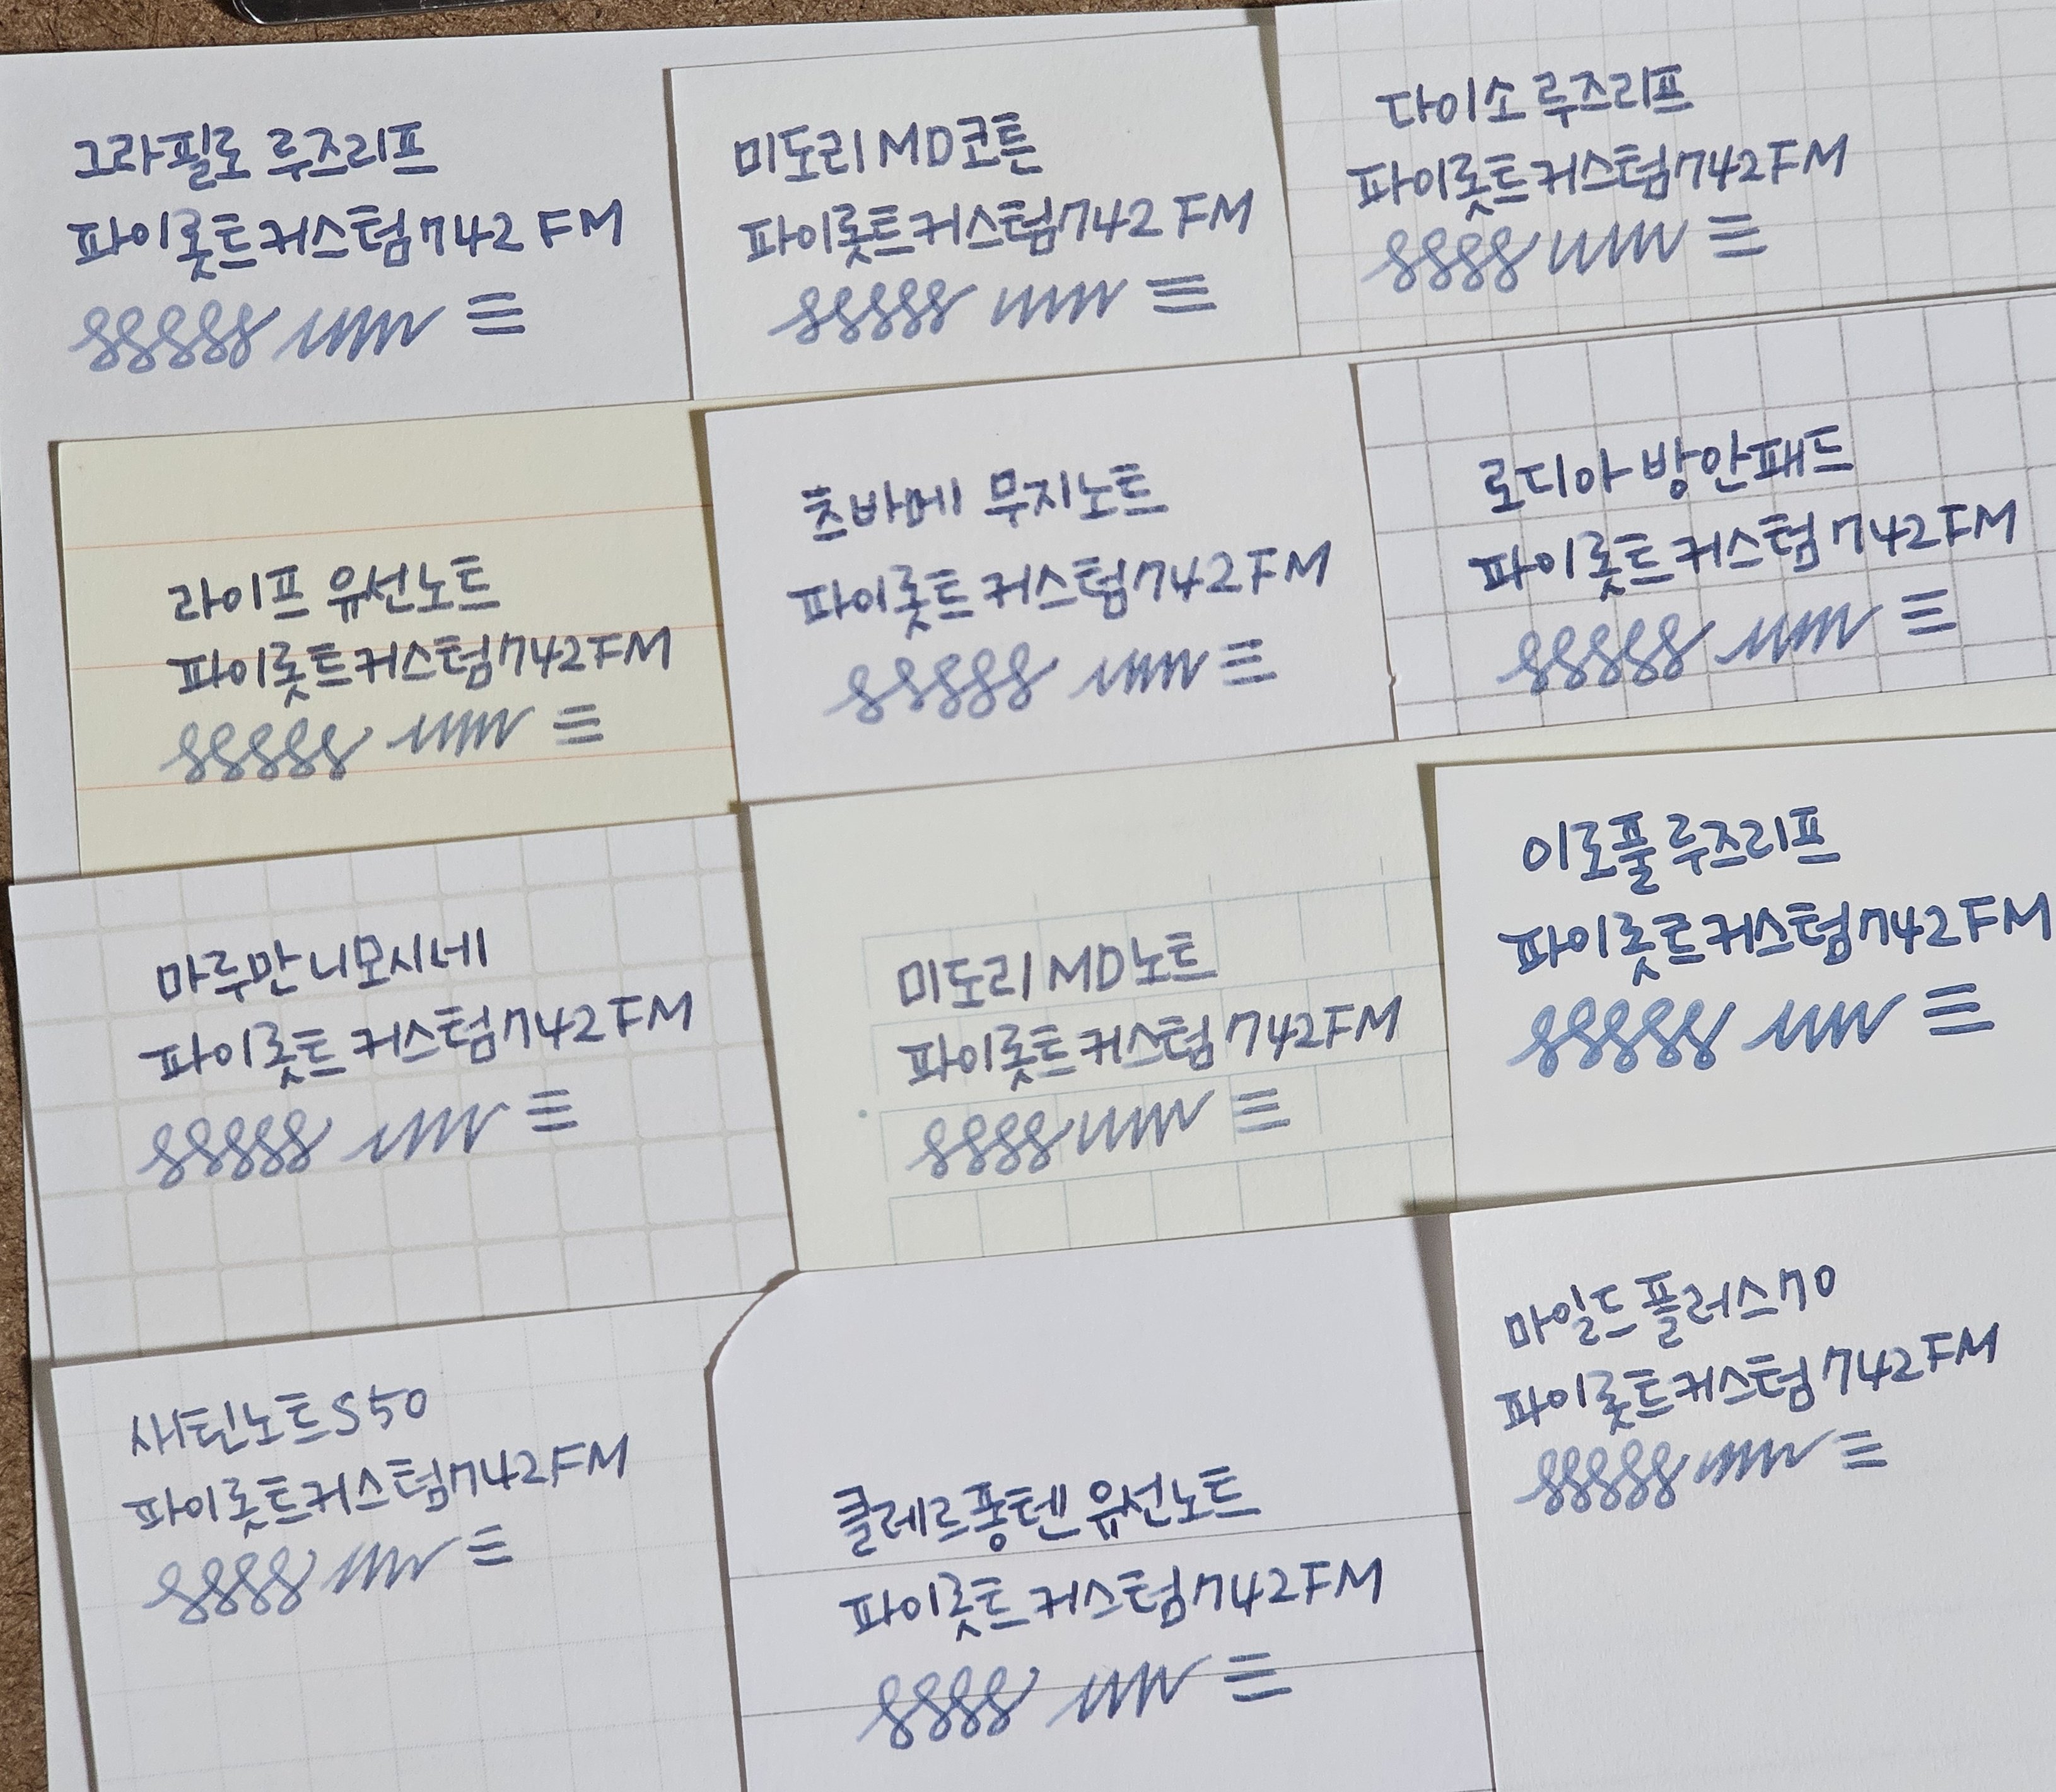 그라필로 루즈리프
파이롯트커스텀742 FM
미도리 MD코튼
파이롯트커스텀742 FM
다이소 루즈리프
파이롯트커스텀742FM
라이프 유선노트
파이롯트커스텀742FM
츠바메 무지노트
파이롯트 커스텀742FM
로디아 방안패드
파이롯트커스텀742FM
마루만 니모시네
파이롯트 커스텀742FM
미도리 MD노트
파이롯트커스텀742FM
이로풀 루즈리프
파이롯트커스텀742FM
새틴노트S50
파이롯트커스텀742FM
클레르퐁텐 유선노트
파이롯트 커스텀742FM
마일드플러스70
파이롯트커스텀742FM